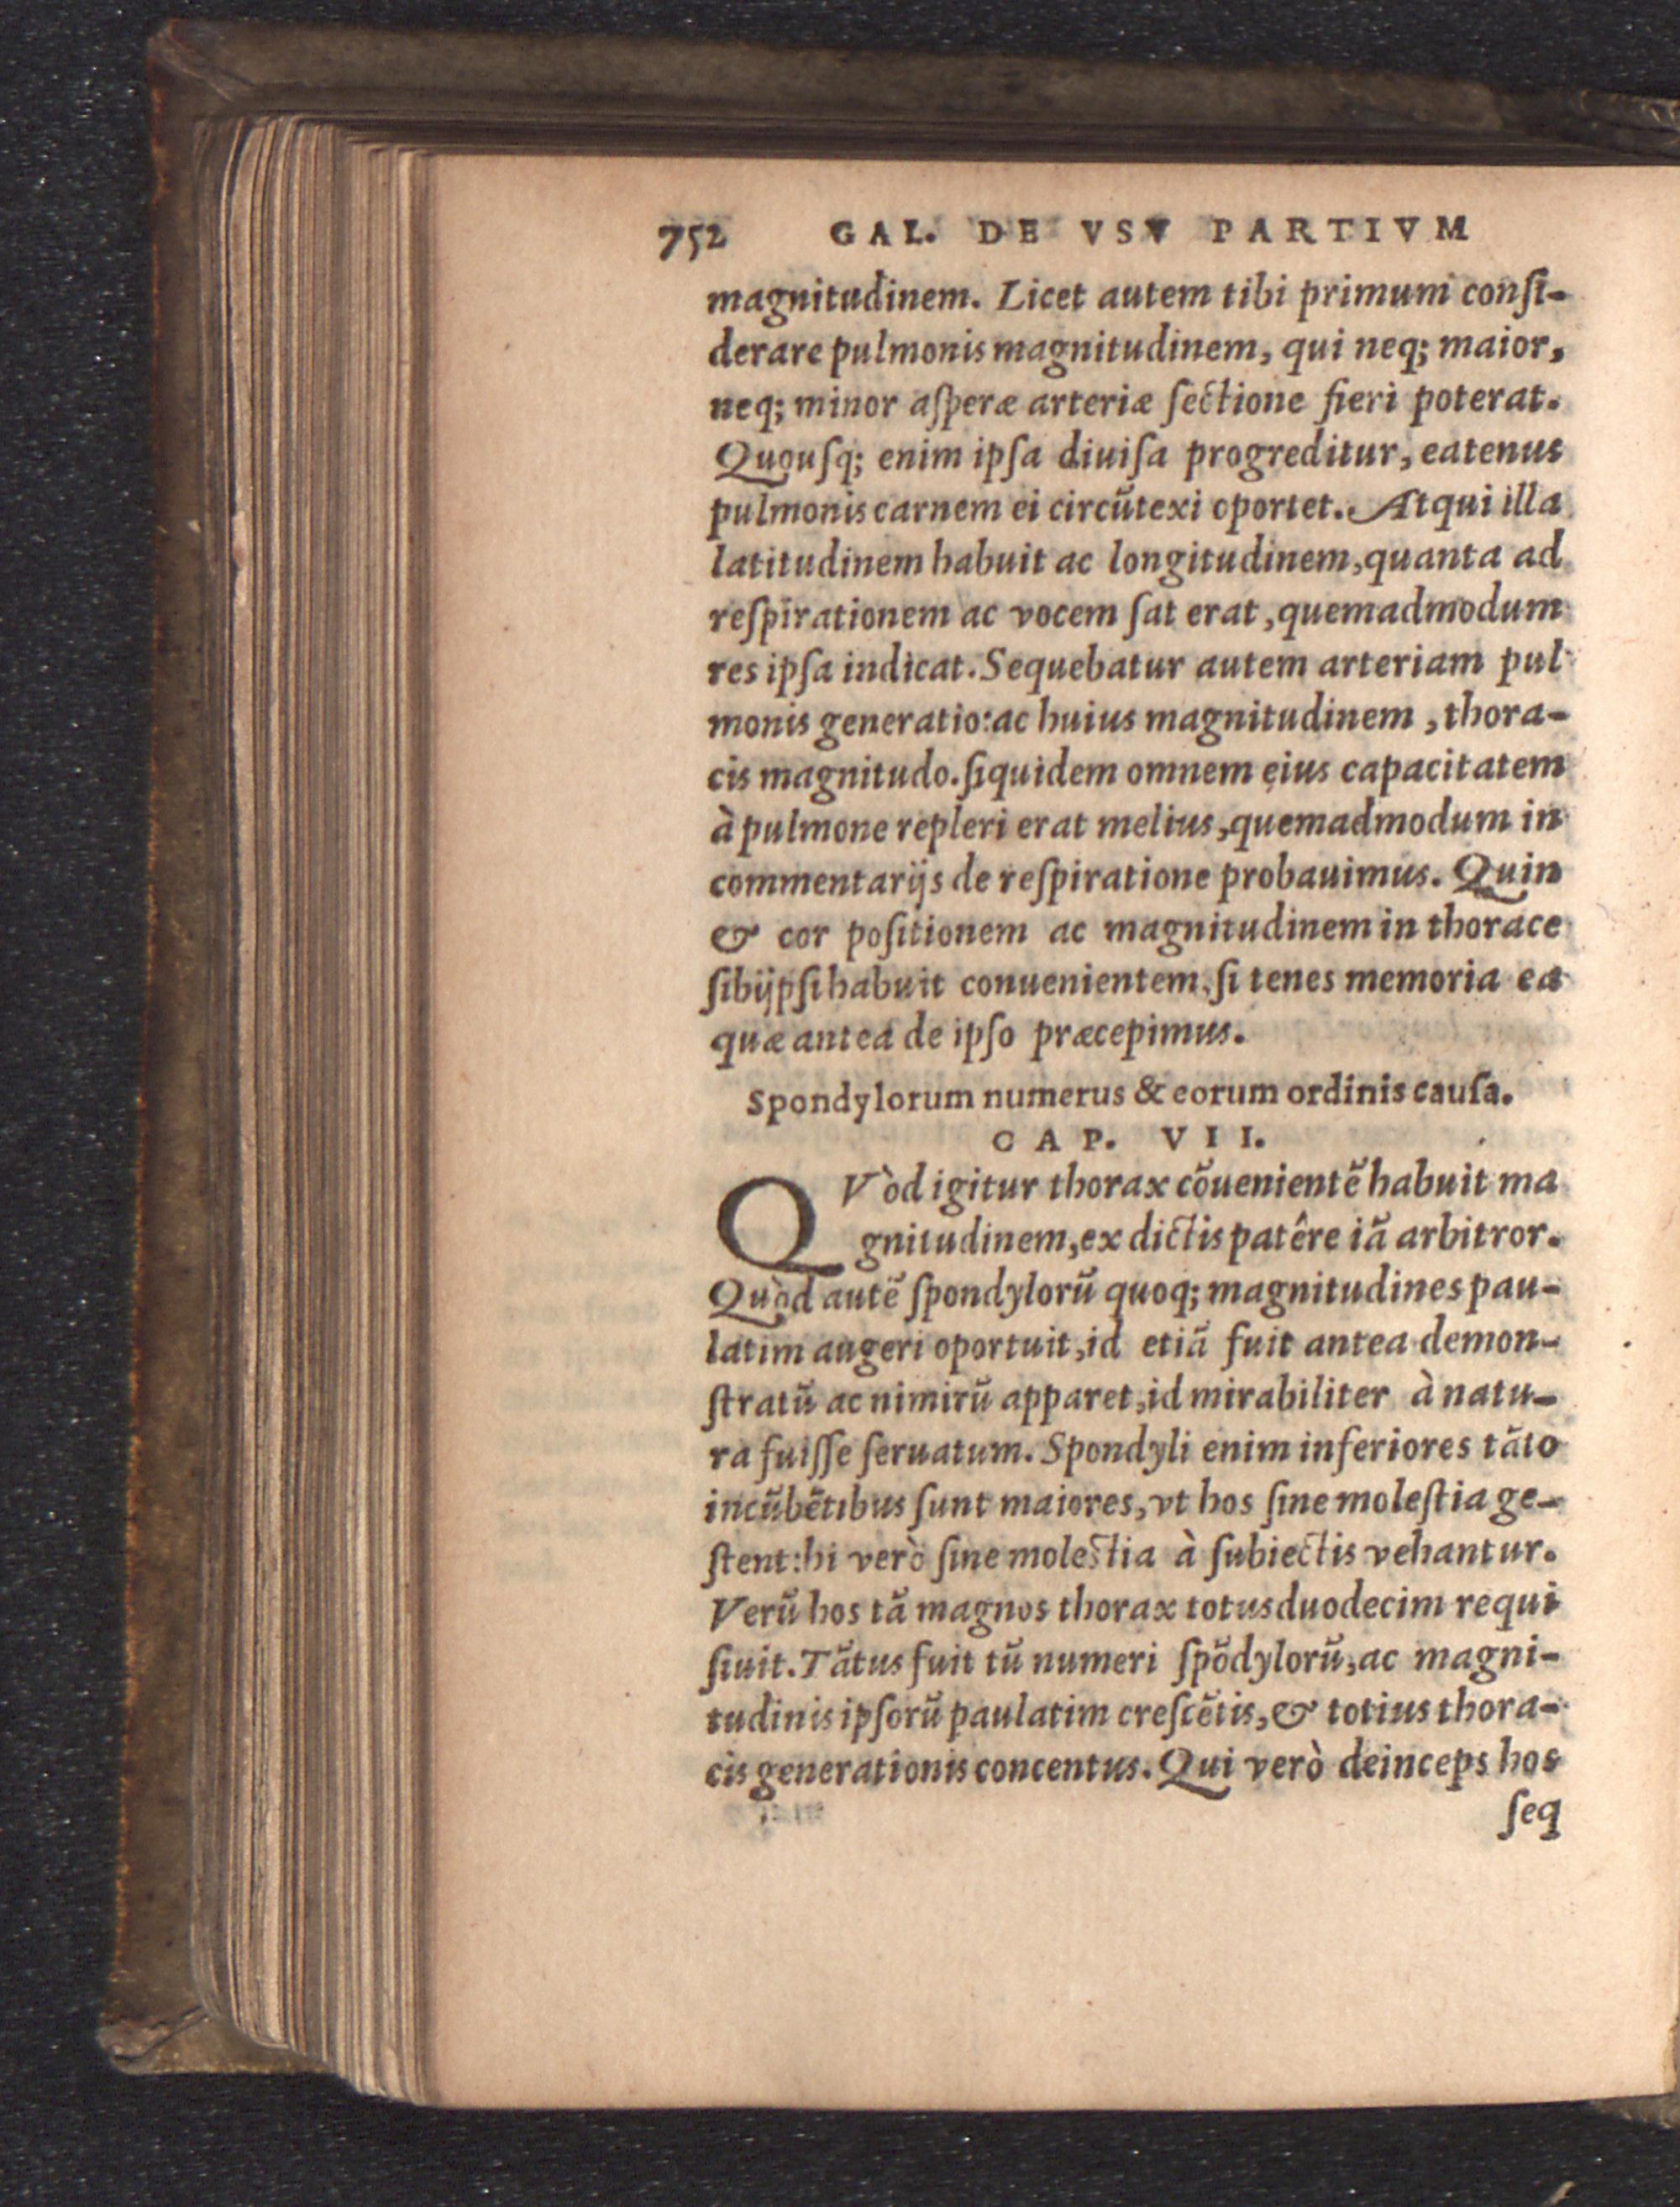 752 GAL. DE VSV PARTIVM
magnitudinem. Licet autem tibi primum conſi-
derare pulmonis magnitudinem, qui neq; maior,
neq; minor aſperæ arteriæ ſectione fieri poterat.
Quouſq; enim ipſa diuiſa progreditur, eatenus
pulmonis carnem ei circũtexi oportet. Atqui illa
latitudinem habuit ac longitudinem, quanta ad
reſpirationem ac vocem ſat erat, quemadmodum
res ipſa indicat. Sequebatur autem arteriam pul
monis generatio: ac huius magnitudinem, thora-
cis magnitudo. ſiquidem omnem eius capacitatem
à pulmone repleri erat melius, quemadmodum in
commentarijs de reſpiratione probauimus. Quin
& cor poſitionem ac magnitudinem in thorace
ſibijpſi habuit conuenientem, ſi tenes memoria ea
quæ antea de ipſo præcepimus.
Spondylorum numerus & eorum ordinis cauſa.
CAP. VII.
QVòd igitur thorax cõuenientẽ habuit ma
gnitudinem, ex dictis patêre iã arbitror.
Quòd autẽ ſpondylorũ quoq; magnitudines pau-
latim augeri oportuit, id etiã fuit antea demon-
ſtratũ ac nimirũ apparet, id mirabiliter à natu-
ra fuiſſe ſeruatum. Spondyli enim inferiores tãto
incũbẽtibus ſunt maiores, vt hos ſine moleſtia ge-
ſtent: hi verò ſine moleſtia à ſubiectis vehantur.
Verũ hos tã magnos thorax totus duodecim requi
ſiuit. Tãtus fuit tũ numeri ſpõdylorũ, ac magni-
tudinis ipſorũ paulatim creſcẽtis, & totius thora-
cis generationis concentus. Qui verò deinceps hos
ſeq